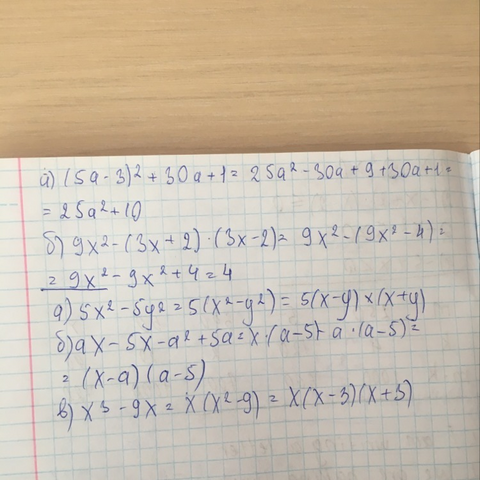 а) (5a-3)² + 30a + 1 = 25a² - 30a + 9 + 30a + 1 =
= 25a² + 10
б) 9x² - (3x + 2) · (3x - 2) = 9x² - (9x² - 4) =
= 9x² - 9x² + 4 = 4
а) 5x² - 5y² = 5(x² - y²) = 5(x - y) × (x + y)
б) ax - 5x - a² + 5a = x · (a - 5) - a · (a - 5) =
= (x - a) (a - 5)
в) x³ - 9x = x(x² - 9) = x(x - 3)(x + 3)